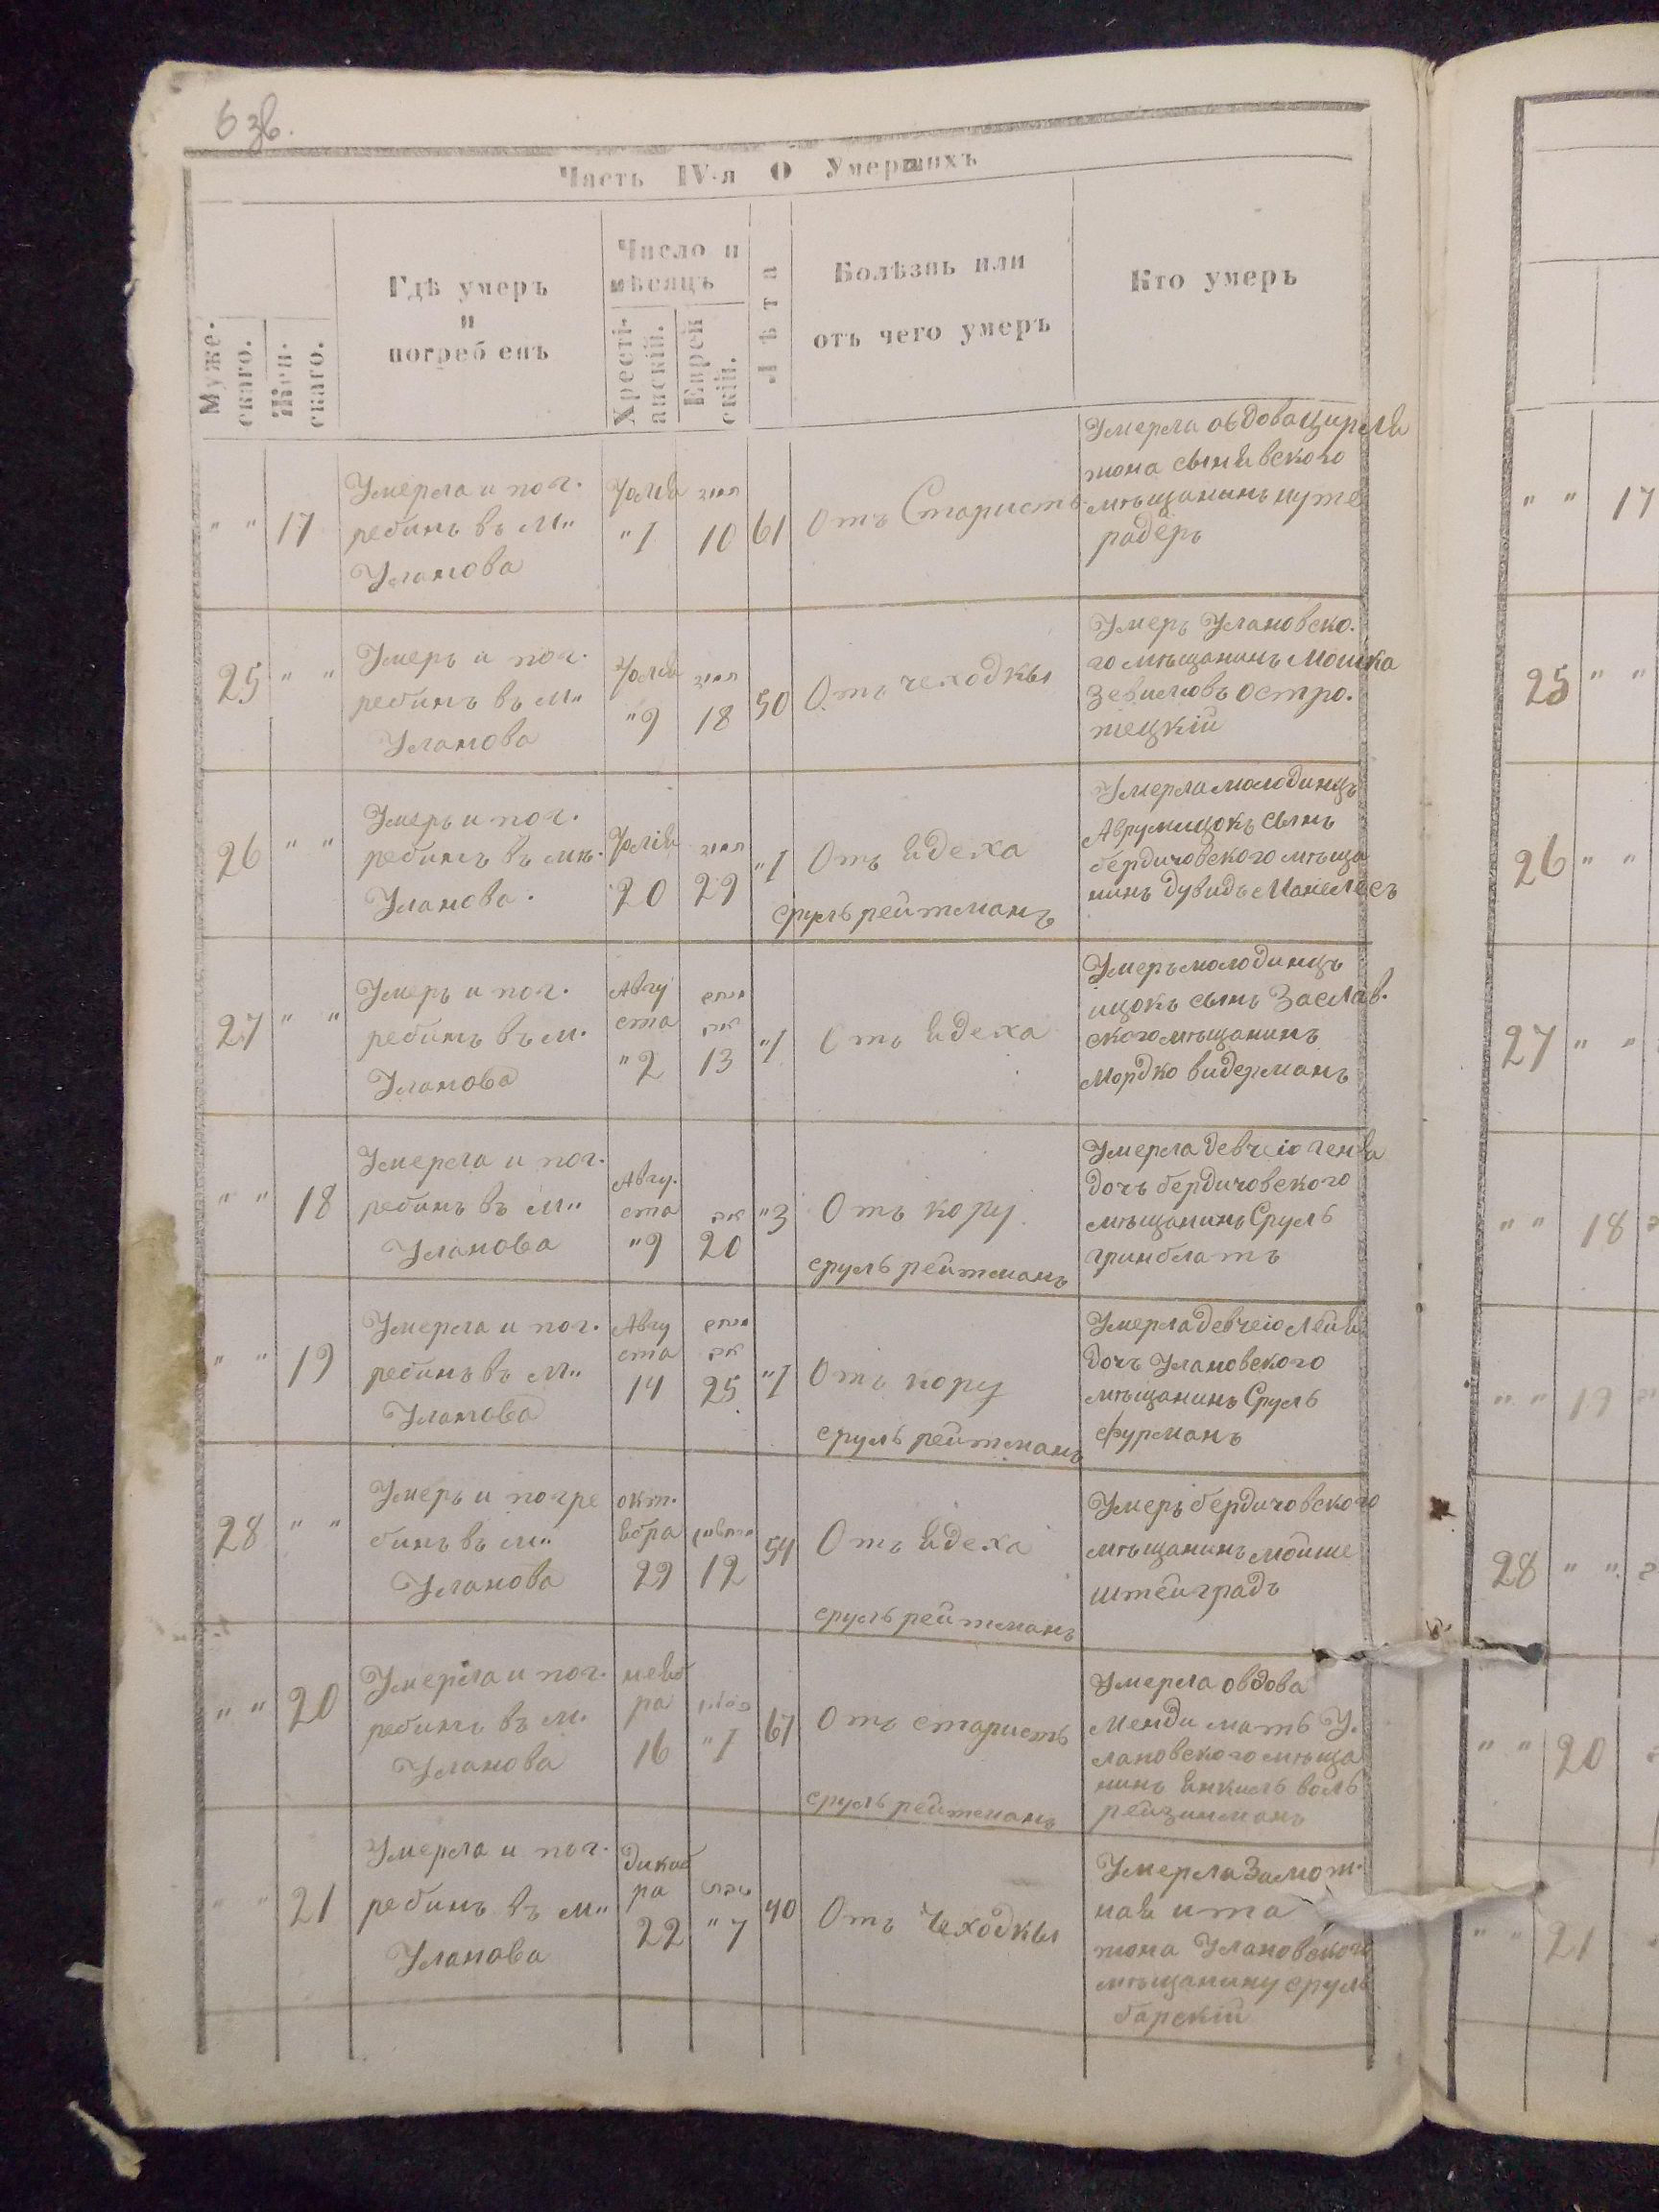 6 зв.
Часть IV-я О Умершихъ
Муже-
скаго.
Жен-
скаго.
Гдѣ умеръ
и
погребенъ
Число и
мѣсяцъ
Хрести-
анскій.
Еврей
скій.
Лѣта
Болѣзнь или
отъ чего умеръ
Кто умеръ
" " 17
Умерла и пог.
ребинъ въ м"
Уланова
Юлия
"1
תמוז
10
61
Отъ Старисть
Умерла овдова Цирля
жона сынявского
мѣщанинъ нуте
радеръ
25 " "
Умеръ и пог.
ребинъ въ м"
Уланова
Юлия
"9
תמוז
18
50
Отъ чеходкы
Умеръ Улановско.
го мѣщанинъ Мошка
Зевиловъ Остро.
жецкій
26 " "
Умеръ и пог.
ребинъ въ мѣ.
Уланова.
Юлія
20
תמוז
29
"1
Отъ ядеха
сруль рейтманъ
Умерла молодинцъ
Аврумицокъ сынъ
бердичовского мѣща
нинъ дувидъ Манелесъ
27 " "
Умеръ и пог.
ребинъ въ м.
Уланова
Авгу
ста
"2
מנחם
אב
13
"1
Отъ ядеха
Умеръ молодинцъ
ицокъ сынъ Заслав.
ского мѣщанинъ
Мордко видерманъ
" " 18
Умерла и пог.
ребинъ въ м"
Уланова
Авгу.
ста
"9
אב
20
"3
Отъ кору
сруль рейтманъ
Умерла девчею геня
дочъ бердичовского
мѣщанинъ Сруль
гринблатъ
" " 19
Умерла и пог.
ребинъ въ м"
Уланова
Авгу
ста
14
מנחם
אב
25
"1
Отъ кору
сруль рейтманъ
Умерла девчею Лейя
дочъ Улановского
мѣщанинъ Сруль
фурманъ
28 " "
Умеръ и погре
бинъ въ м"
Уланова
окт.
ябра
29
12
54
Отъ ядеха
сруль рейтманъ
Умеръ бердичовского
мѣщанинъ мойше
штейградъ
" " 20
Умерла и пог.
ребинъ въ м.
Уланова
нояб
ра
16
כסלו
"1
67
Отъ старисть
сруль рейтманъ
Умерла овдова
Менди мать У.
лановского мѣща
нинъ янкиль воль
рейзинманъ
" " 21
Умерла и пог.
ребинъ въ м"
Уланова
дикаб
ра
22
טבת
"7
40
Отъ Чеходкы
Умерла Замож.
ная ита
жона Улановского
мѣщанину сруль
барскій
17
25 " "
26 " "
27 " "
" " 18
" " 19
28 " "
" " 20
" " 21